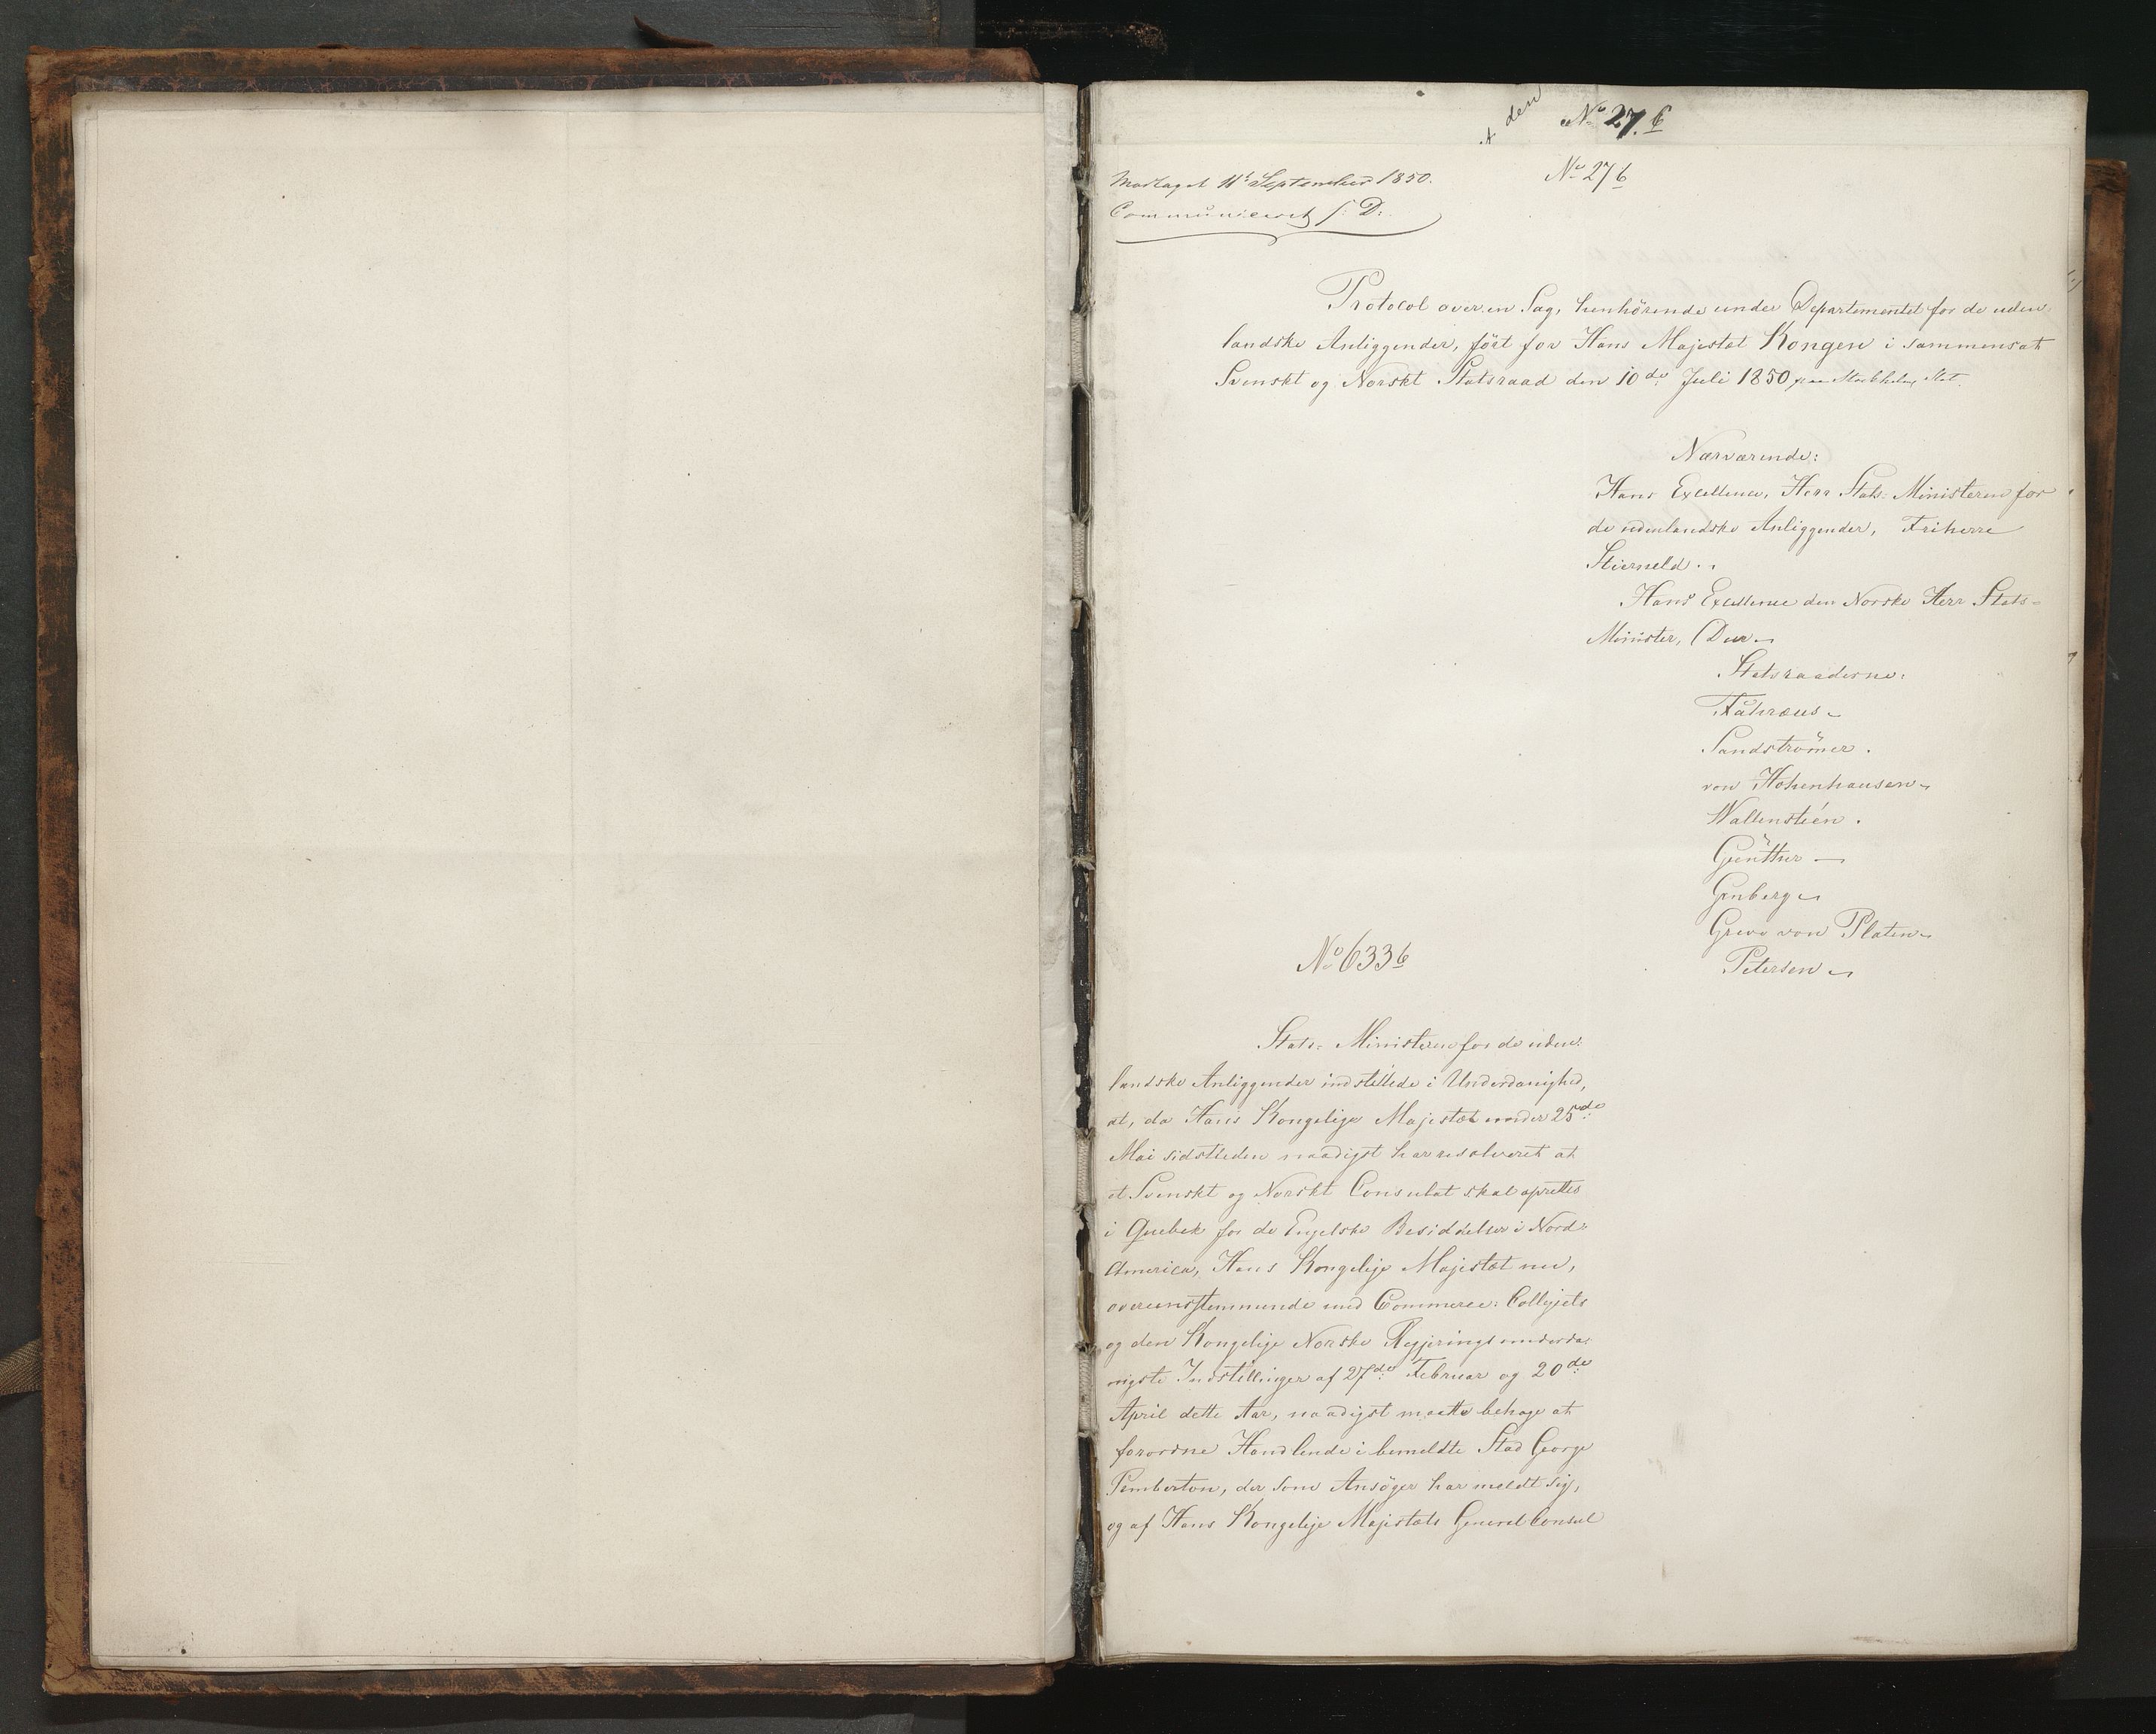 den
No 27. 6
No 276
Modtaget 11te September 1850.
Communiceret s: D:
Protocol over en Sag, henhörende under Departementet for de uden-
landske Anliggender, fört for Hans Majestæt Kongen i sammensat
Svenskt og Norskt Statsraad den 10de Juli 1850 paa Stockholms Slot.
Nærværende:
Hans Excellence, Herr Stats-Ministeren for
de udenlandske Anliggender, Friherre
Stierneld.
Hans Excellence den Norske Herr Stats-
Minister, Due
Statsraaderne:
Fåhræus
Sandströmer.
von Hohenhausen
Wallensteén.
Günther
Genberg
Greve von Platen
Petersen
No 6336
Stats-Ministeren for de uden-
landske Anliggender indstillede i Underdanighed,
at, da Hans Kongelige Majestæt under 25de
Mai sidstleden naadigst har resolveret at
et Svenskt og Norskt Consulat skal oprettes
i Quebek for de Engelske Besiddelser i Nord-
America, Hans Kongelige Majestæt nu,
overensstemmende med Commerce-Collegiets
og den Kongelige Norske Regjerings underda-
nigste Indstillinger af 27de Februar og 20de
April dette Aar, naadigst maatte behage at
forordne Handlende i bemeldte Stad George
Pemberton, der som Ansöger har meldt sig,
og af Hans Kongelige Majestæts General Consul